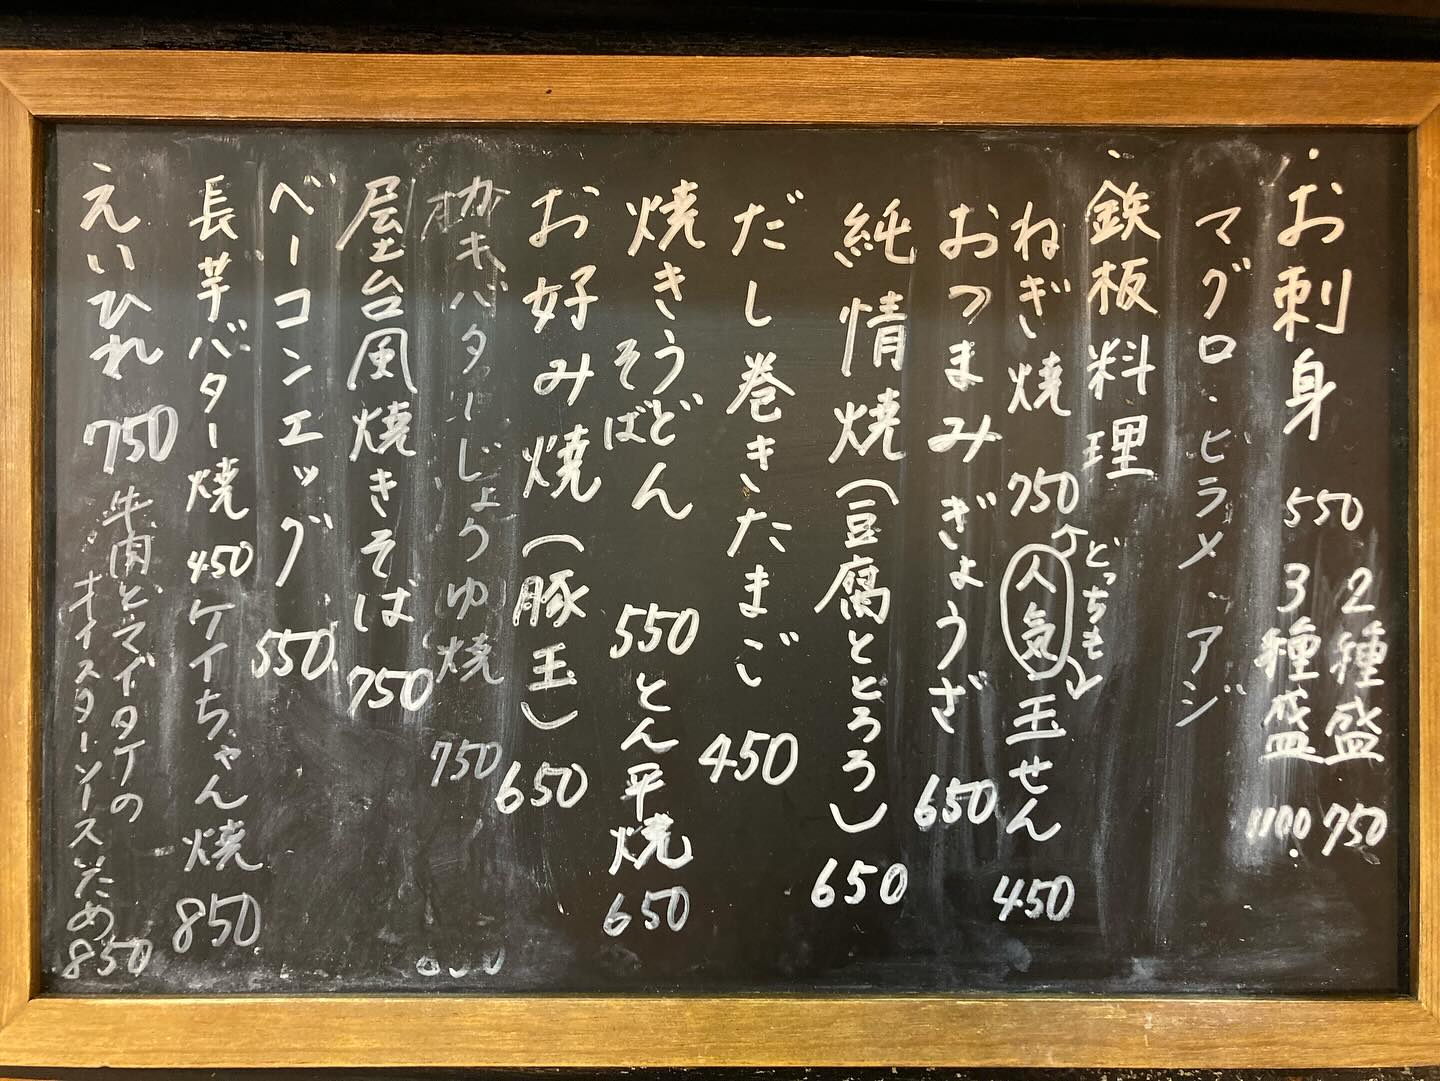 お刺身 550
2種盛 750
3種盛 1100
マグロ・ビラメ・アジ
鉄板料理
ねぎ焼 750
どっちも
人気
玉せん 450
おつまみぎょうざ 650
純情焼(豆腐ととろろ) 650
だし巻きたまご 450
焼きうどん
そば
550
とん平焼 650
お好み焼(豚玉) 650
カキバターじょうゆ焼 750
屋台風焼きそば 750
ベーコンエッグ 550
長芋バター焼 450
ケイちゃん焼 850
えいひれ 750
牛肉とマイタケの
オイスターソースいため 850